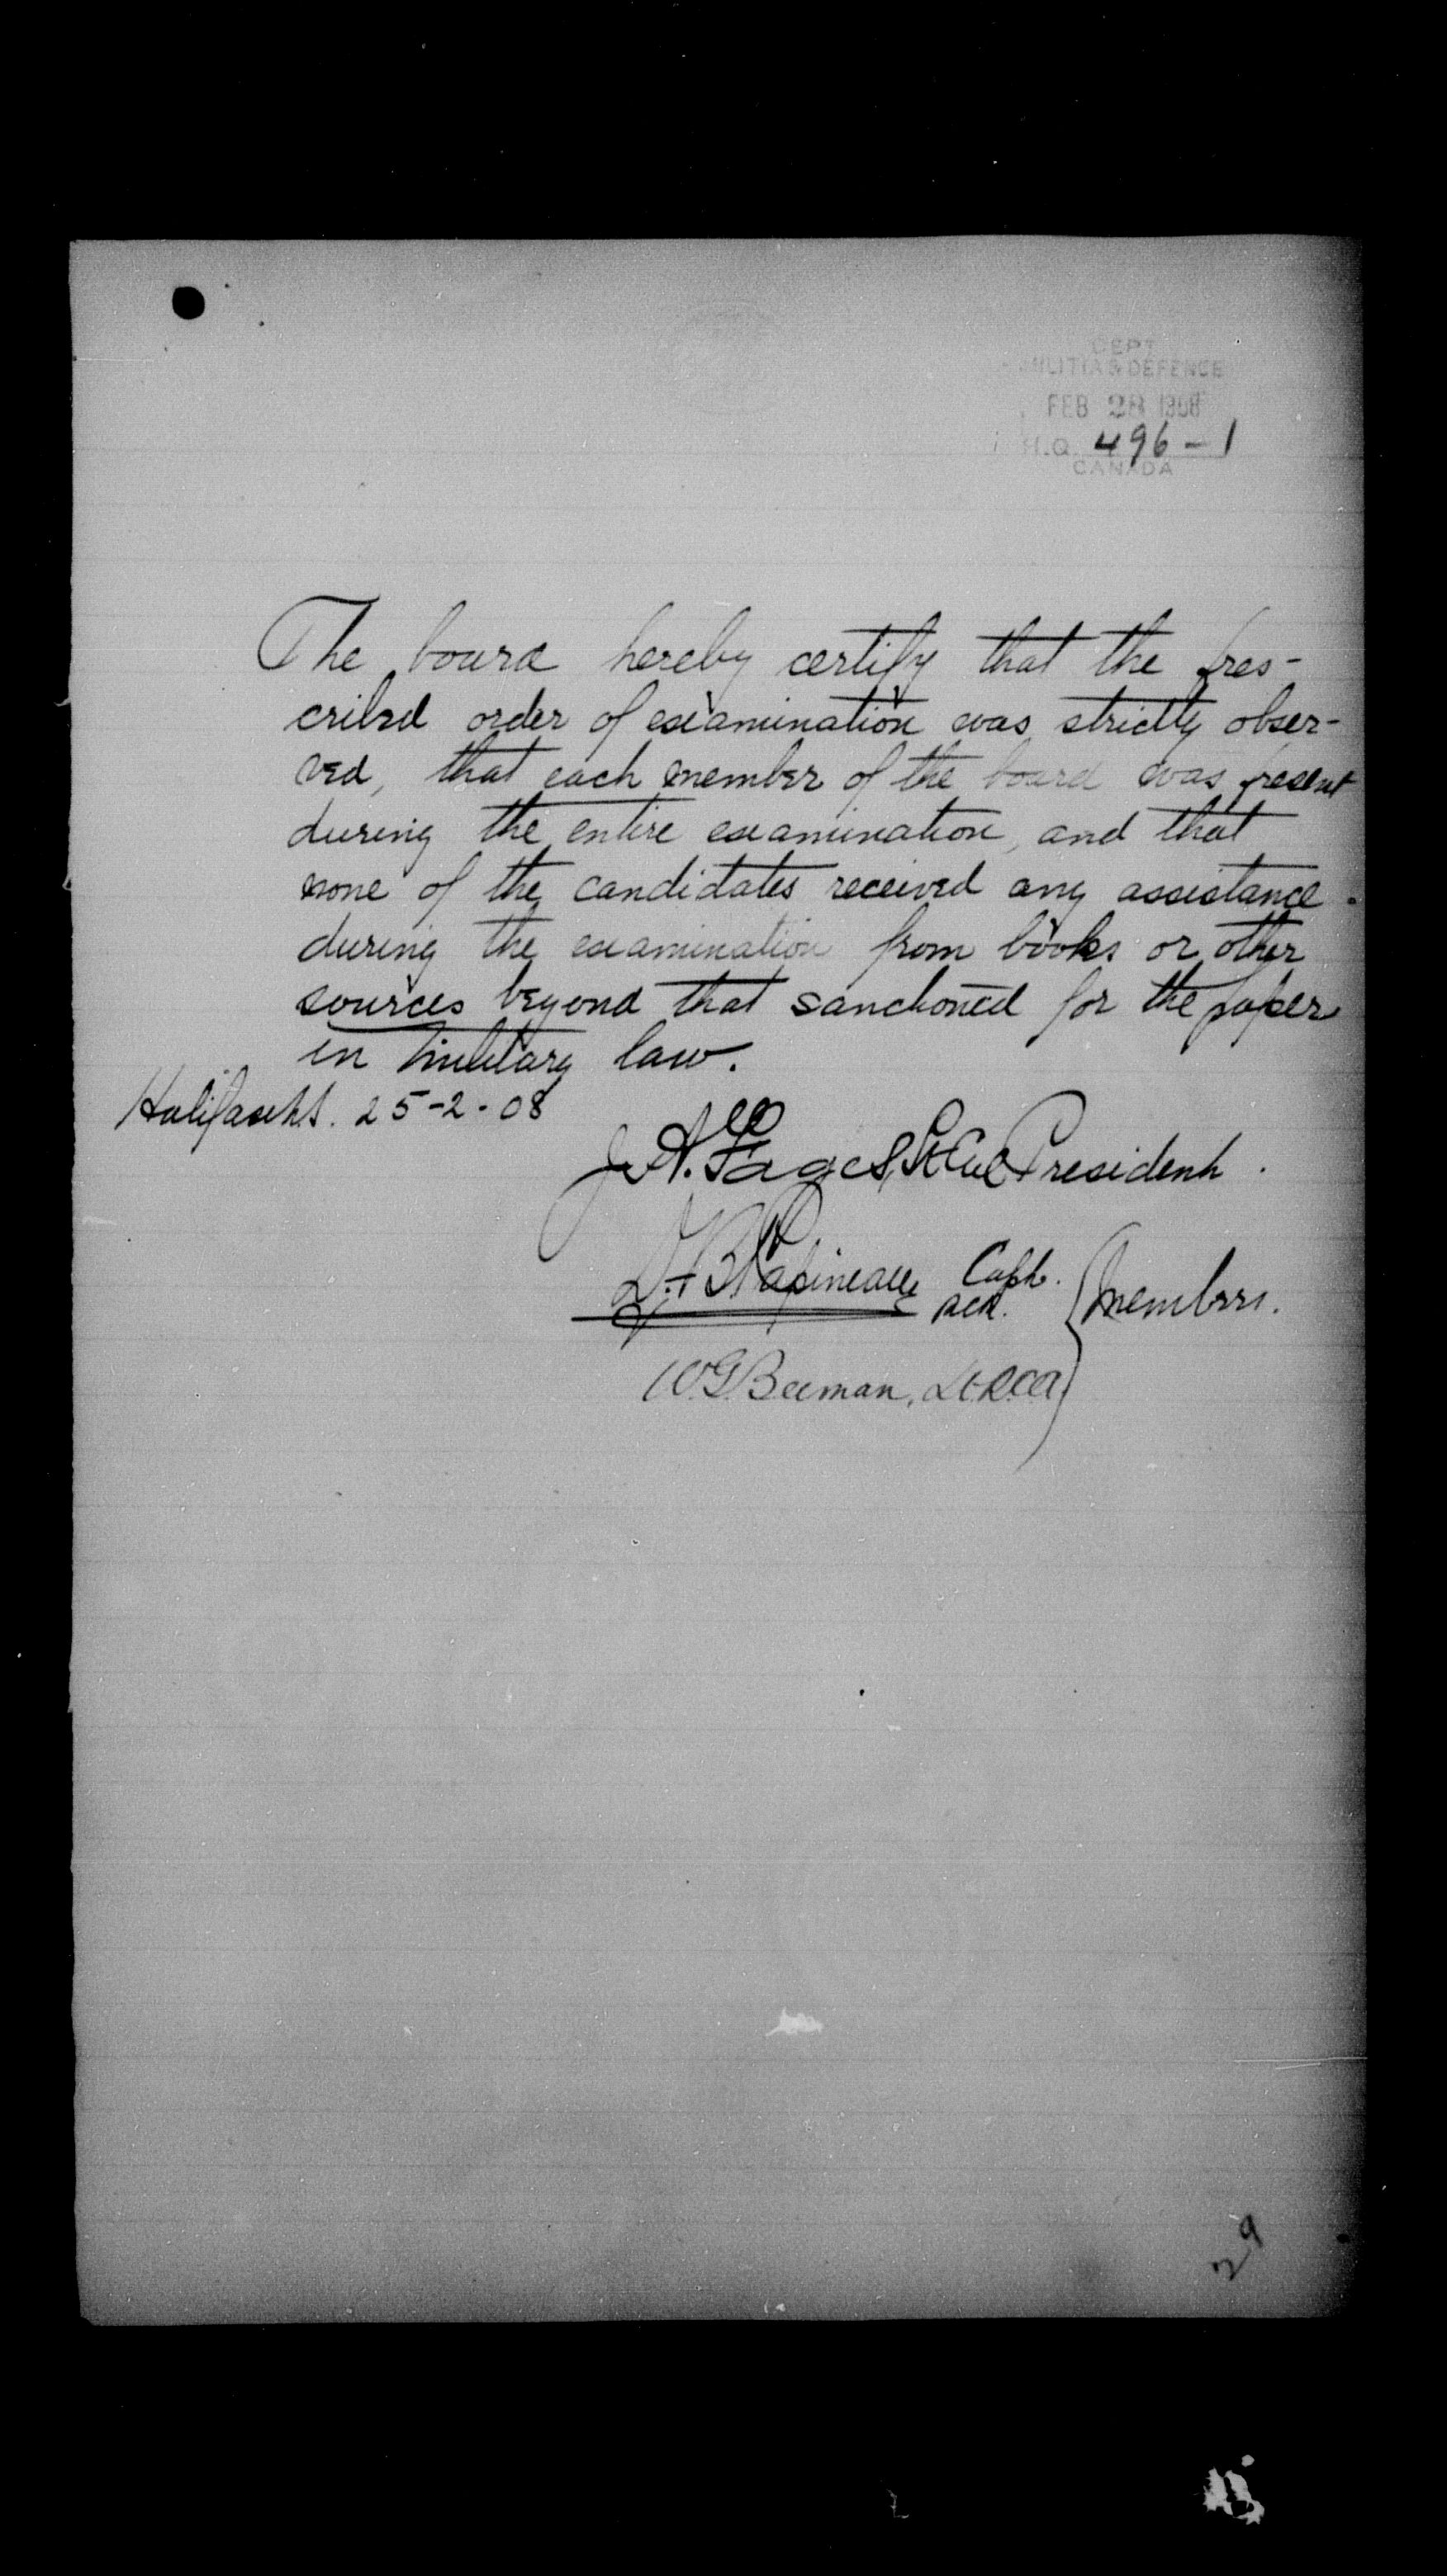 DEPT
MILITIA & DEFENCE
FEB 28 1908
H.Q. 496-1
CANADA
The board hereby certify that the pres-
cribed order of examination was strictly obser-
ved, that each member of the board was present
during the entire examination, and that
none of the candidates received any assistance
during the examination from books or other
sources beyond that sanctioned for the paper
in military law.
Halifax N.S. 25-2-08
J.A. Fages, Lt Col President.
D.B. Papineau Capt.
RCR. Members.
W G Beeman, Lt RCA
29